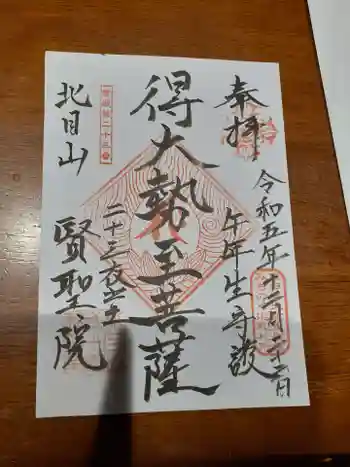 奉拝
令和五年十二月二十二日
午年生守護
得大勢至菩薩
二十三夜
北目山
賢聖院